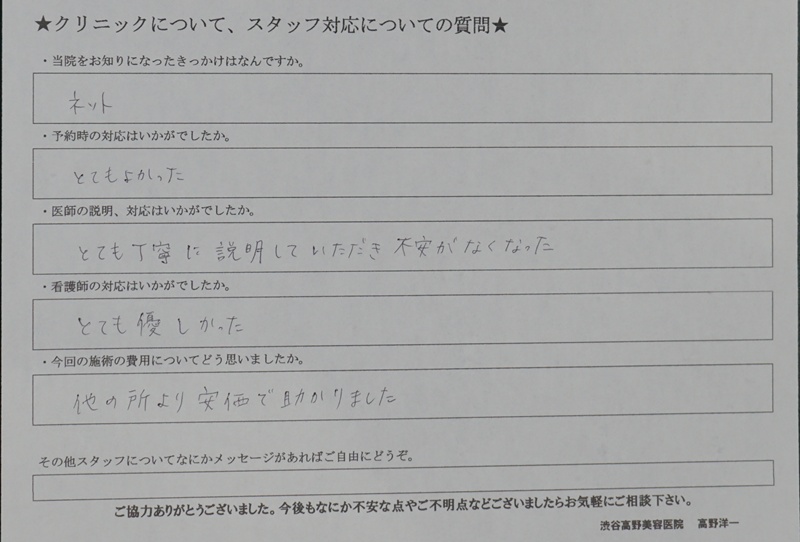 ★クリニックについて、スタッフ対応についての質問★
・当院をお知りになったきっかけはなんですか。
ネット
・予約時の対応はいかがでしたか。
とてもよかった
・医師の説明、対応はいかがでしたか。
とても丁寧に説明していただき不安がなくなった
・看護師の対応はいかがでしたか。
とても優しかった
・今回の施術の費用についてどう思いましたか。
他の所より安価で助かりました
その他スタッフについてなにかメッセージがあればご自由にどうぞ。
ご協力ありがとうございました。今後もなにか不安な点やご不明点などございましたらお気軽にご相談下さい。
渋谷高野美容医院 高野洋一